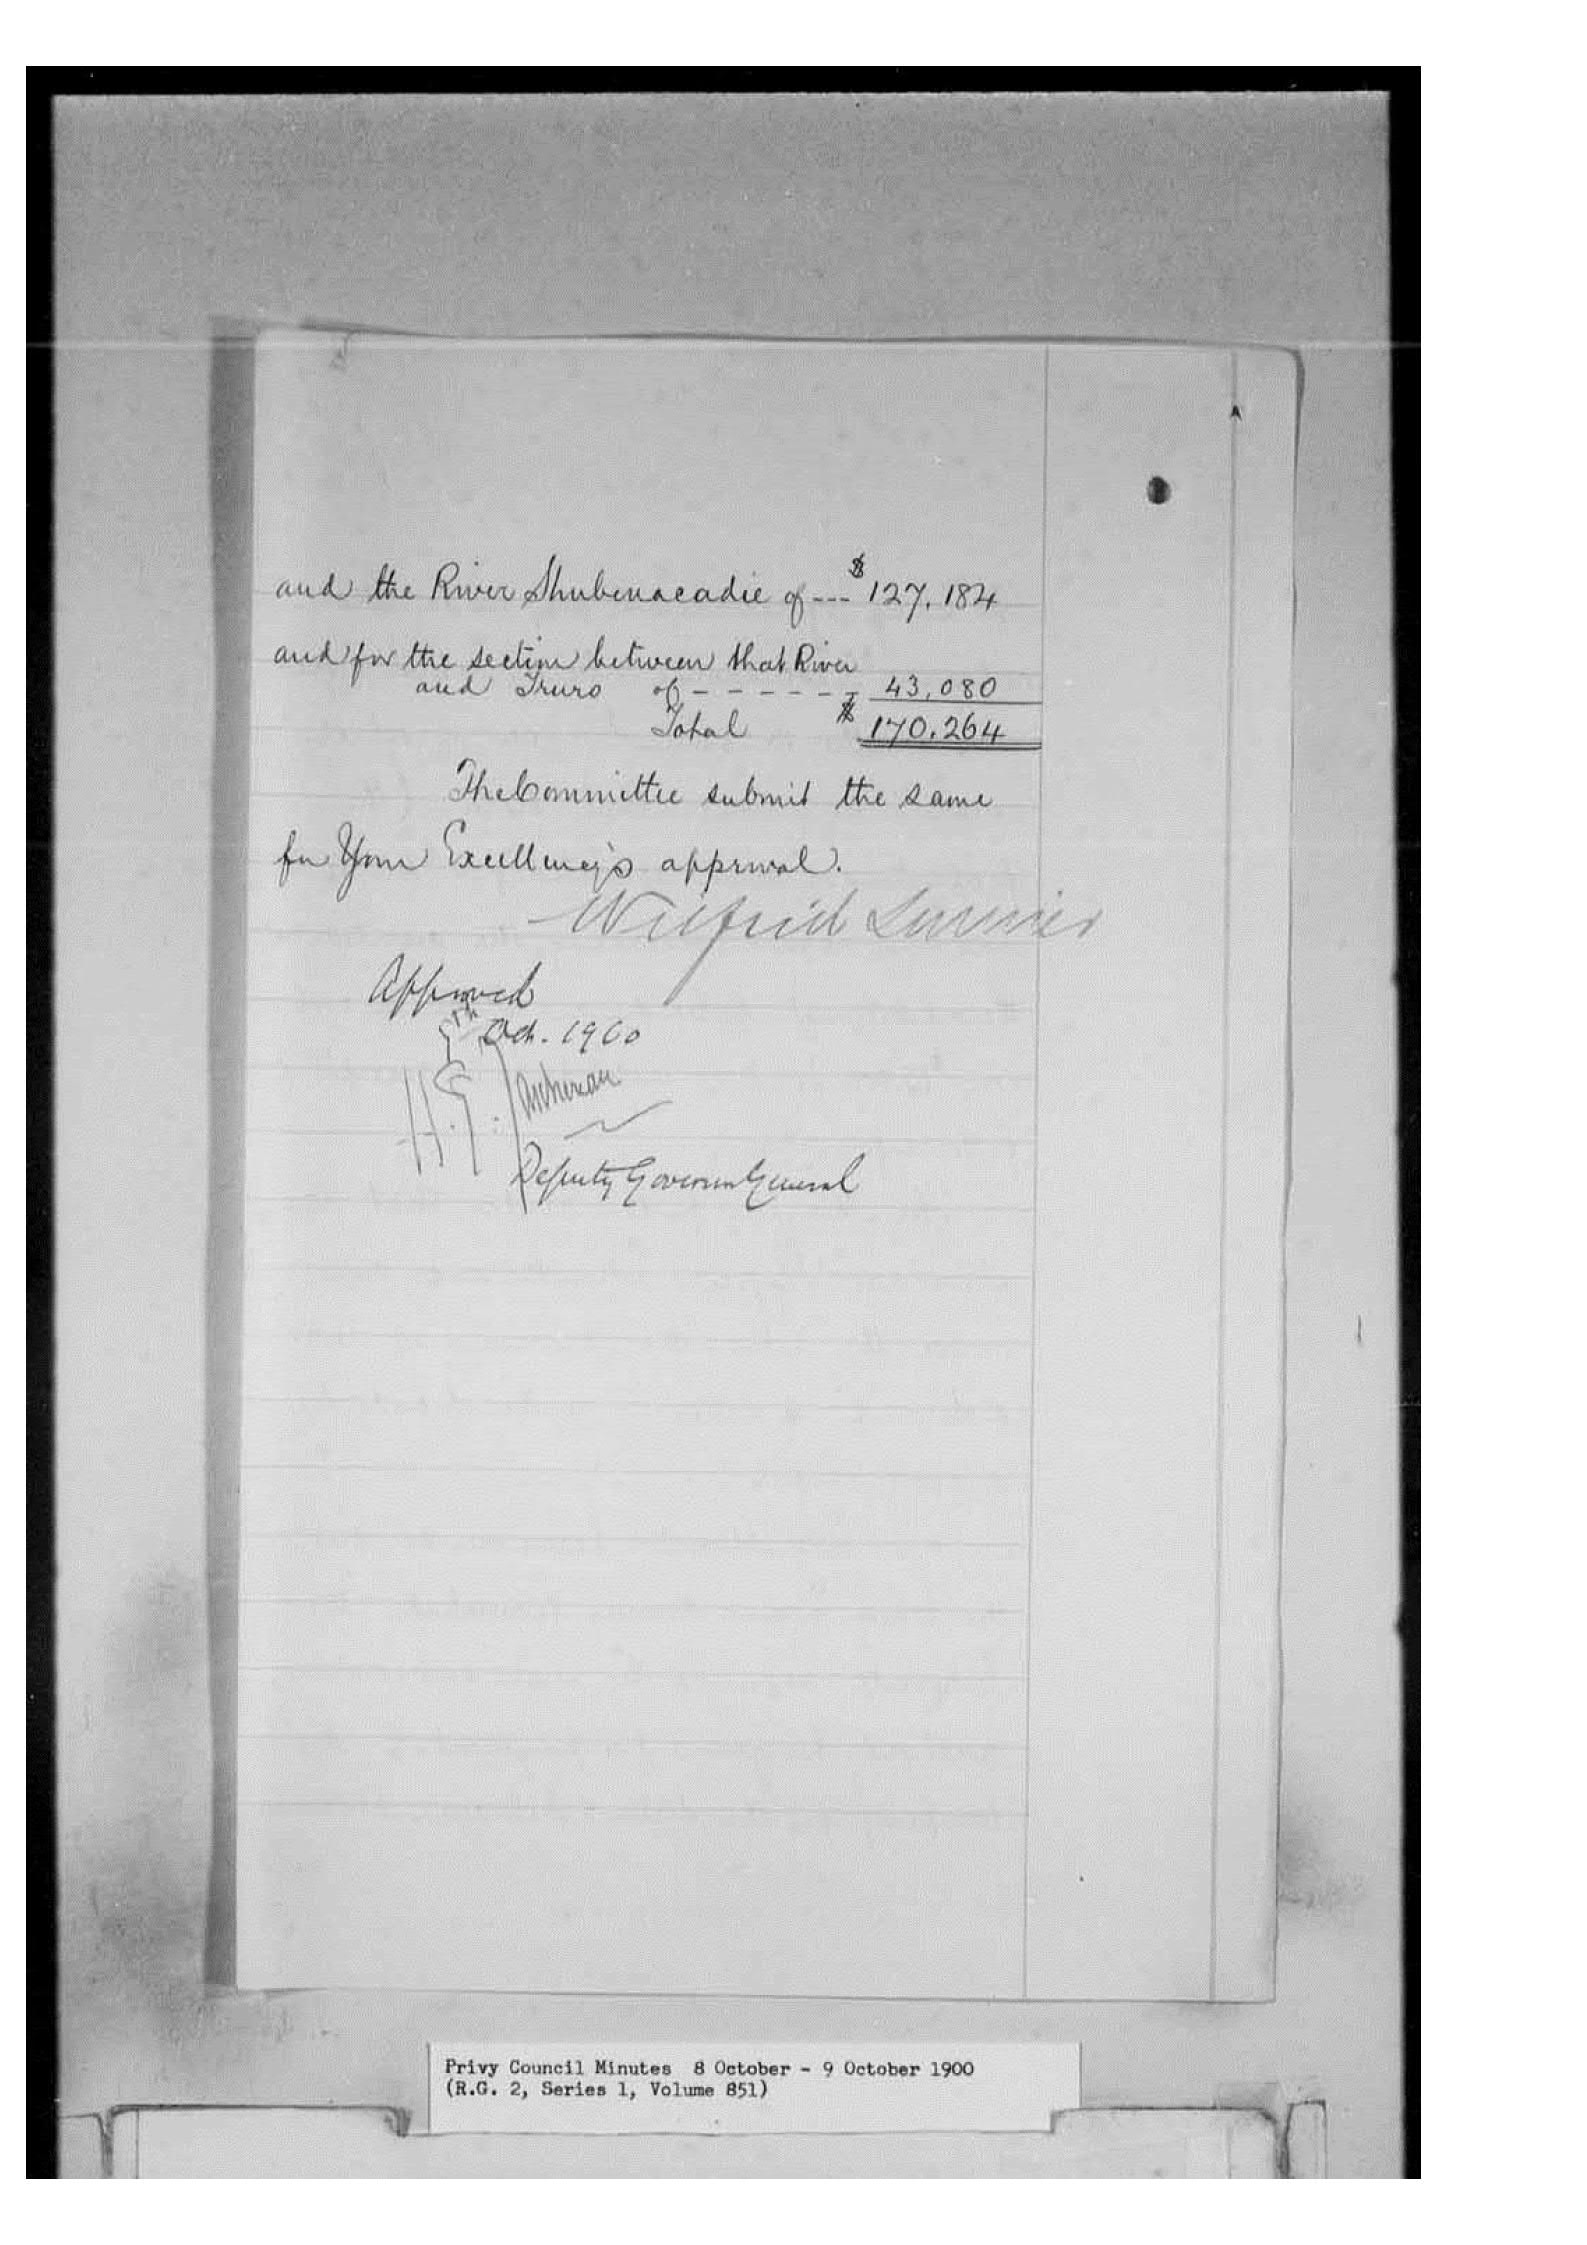 and the River Shubenacadie of --- $127,184
and for the section between that River
and Truro of - - - - - - 43,080
Total $170,264
The Committee submit the same
for Your Excellency's approval.
Wilfrid Laurier
Approved
Oct. 1900
H.
Deputy Governor General
Privy Council Minutes 8 October - 9 October 1900
(R.G. 2, Series 1, Volume 851)